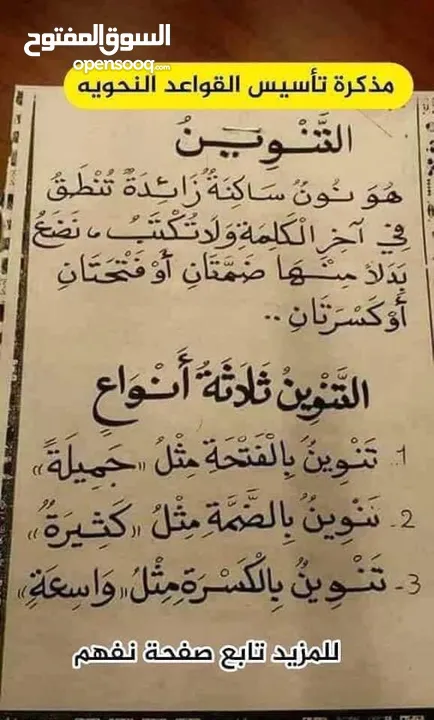 السوق المفتوح
opensooq.com
مذكرة تأسيس القواعد النحويه
التَّنْوِينُ
هُوَ نُونُ سَاكِنَةُ زَائِدَةُ تُنْطَقُ
فِي آخِرِ الْكَلِمَةِ وَلَا تُكْتَبُ، نَضَعُ
بَدَلاً مِنْهَا ضَمَّتَانِ أَوْ فَتْحَتَانِ
أَوْ كَسْرَتَانِ ..
التَّنْوِينُ ثَلَاثَةُ أَنْوَاعٍ
1. تَنْوِينُ بِالْفَتْحَةِ مِثْلُ «جَمِيلَةً»
2. تَنْوِينُ بِالضَّمَّةِ مِثْلُ «كَثِيرَةٌ»
3- تَنْوِينُ بِالْكَسْرَةِ مِثْلُ «وَاسِعَةٍ»
للمزيد تابع صفحة نفهم